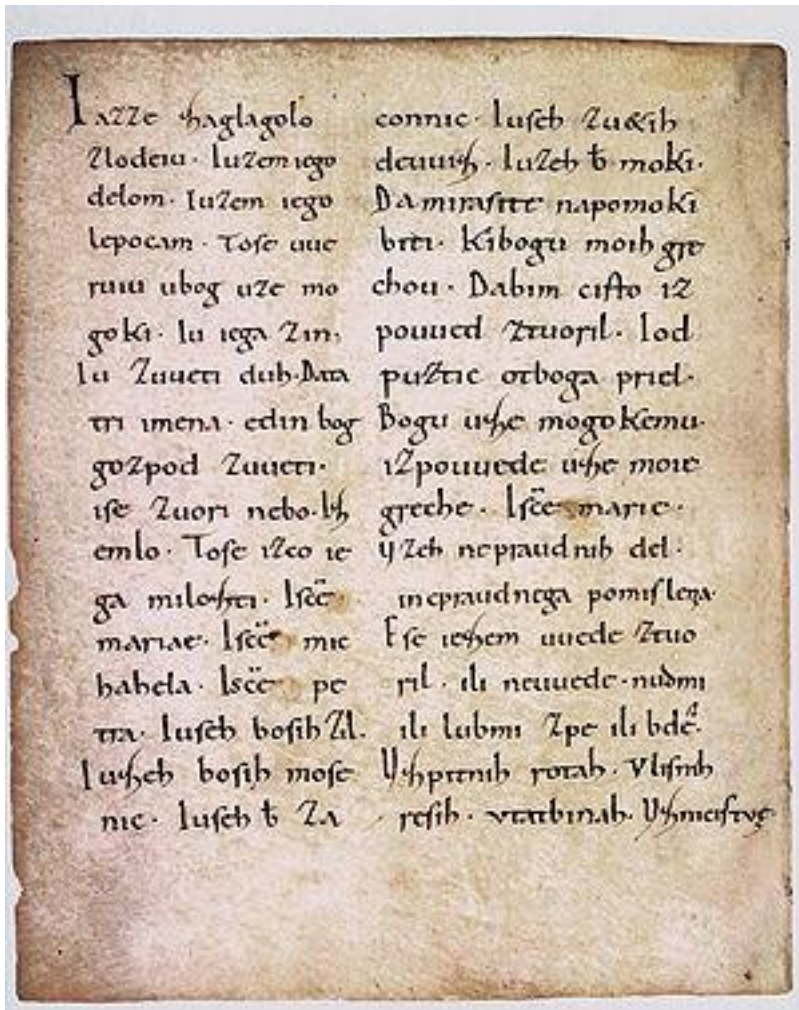 Iazze zaglagolo
zlodeiu · Iuzem iego
delom · Iuzem iego
lepocam · Tose uue
ruiu ubog uze mo
goki · Iu iega zin,
Iu zuueti duh · Data
tri imena · edin bog
gozpod zuueti ·
ise zuori nebo · Iz
emlo · Tose izco ie
ga milozti · Iscē
mariae · Iscē mic
hahela · Iscē pe
tra · Iuseh bosih zil.
Iuzeh bosih mose
nic · Iuseh ƀ za
connic · Iuseh zu&ih
deuuiz · Iuzeh ƀ moki ·
Da mirasite napomoki
biti · Kibogu moih gre
chou · Dabim cisto iz
pouued ztuoril · Iod
puztic otboga priel ·
Bogu uze mogokemu ·
izpouuede uze moie
greche · Iscē marie ·
Uzeh nepraudnih del ·
inepraudnega pomislena ·
Ese iezem uuede ztuo
ril · ili neuuede · nudmi
ili lubmi zpe ili bdē
Uzpitnih rotah · Vlisnih
resih · vtatbinah · Uzmicistuę